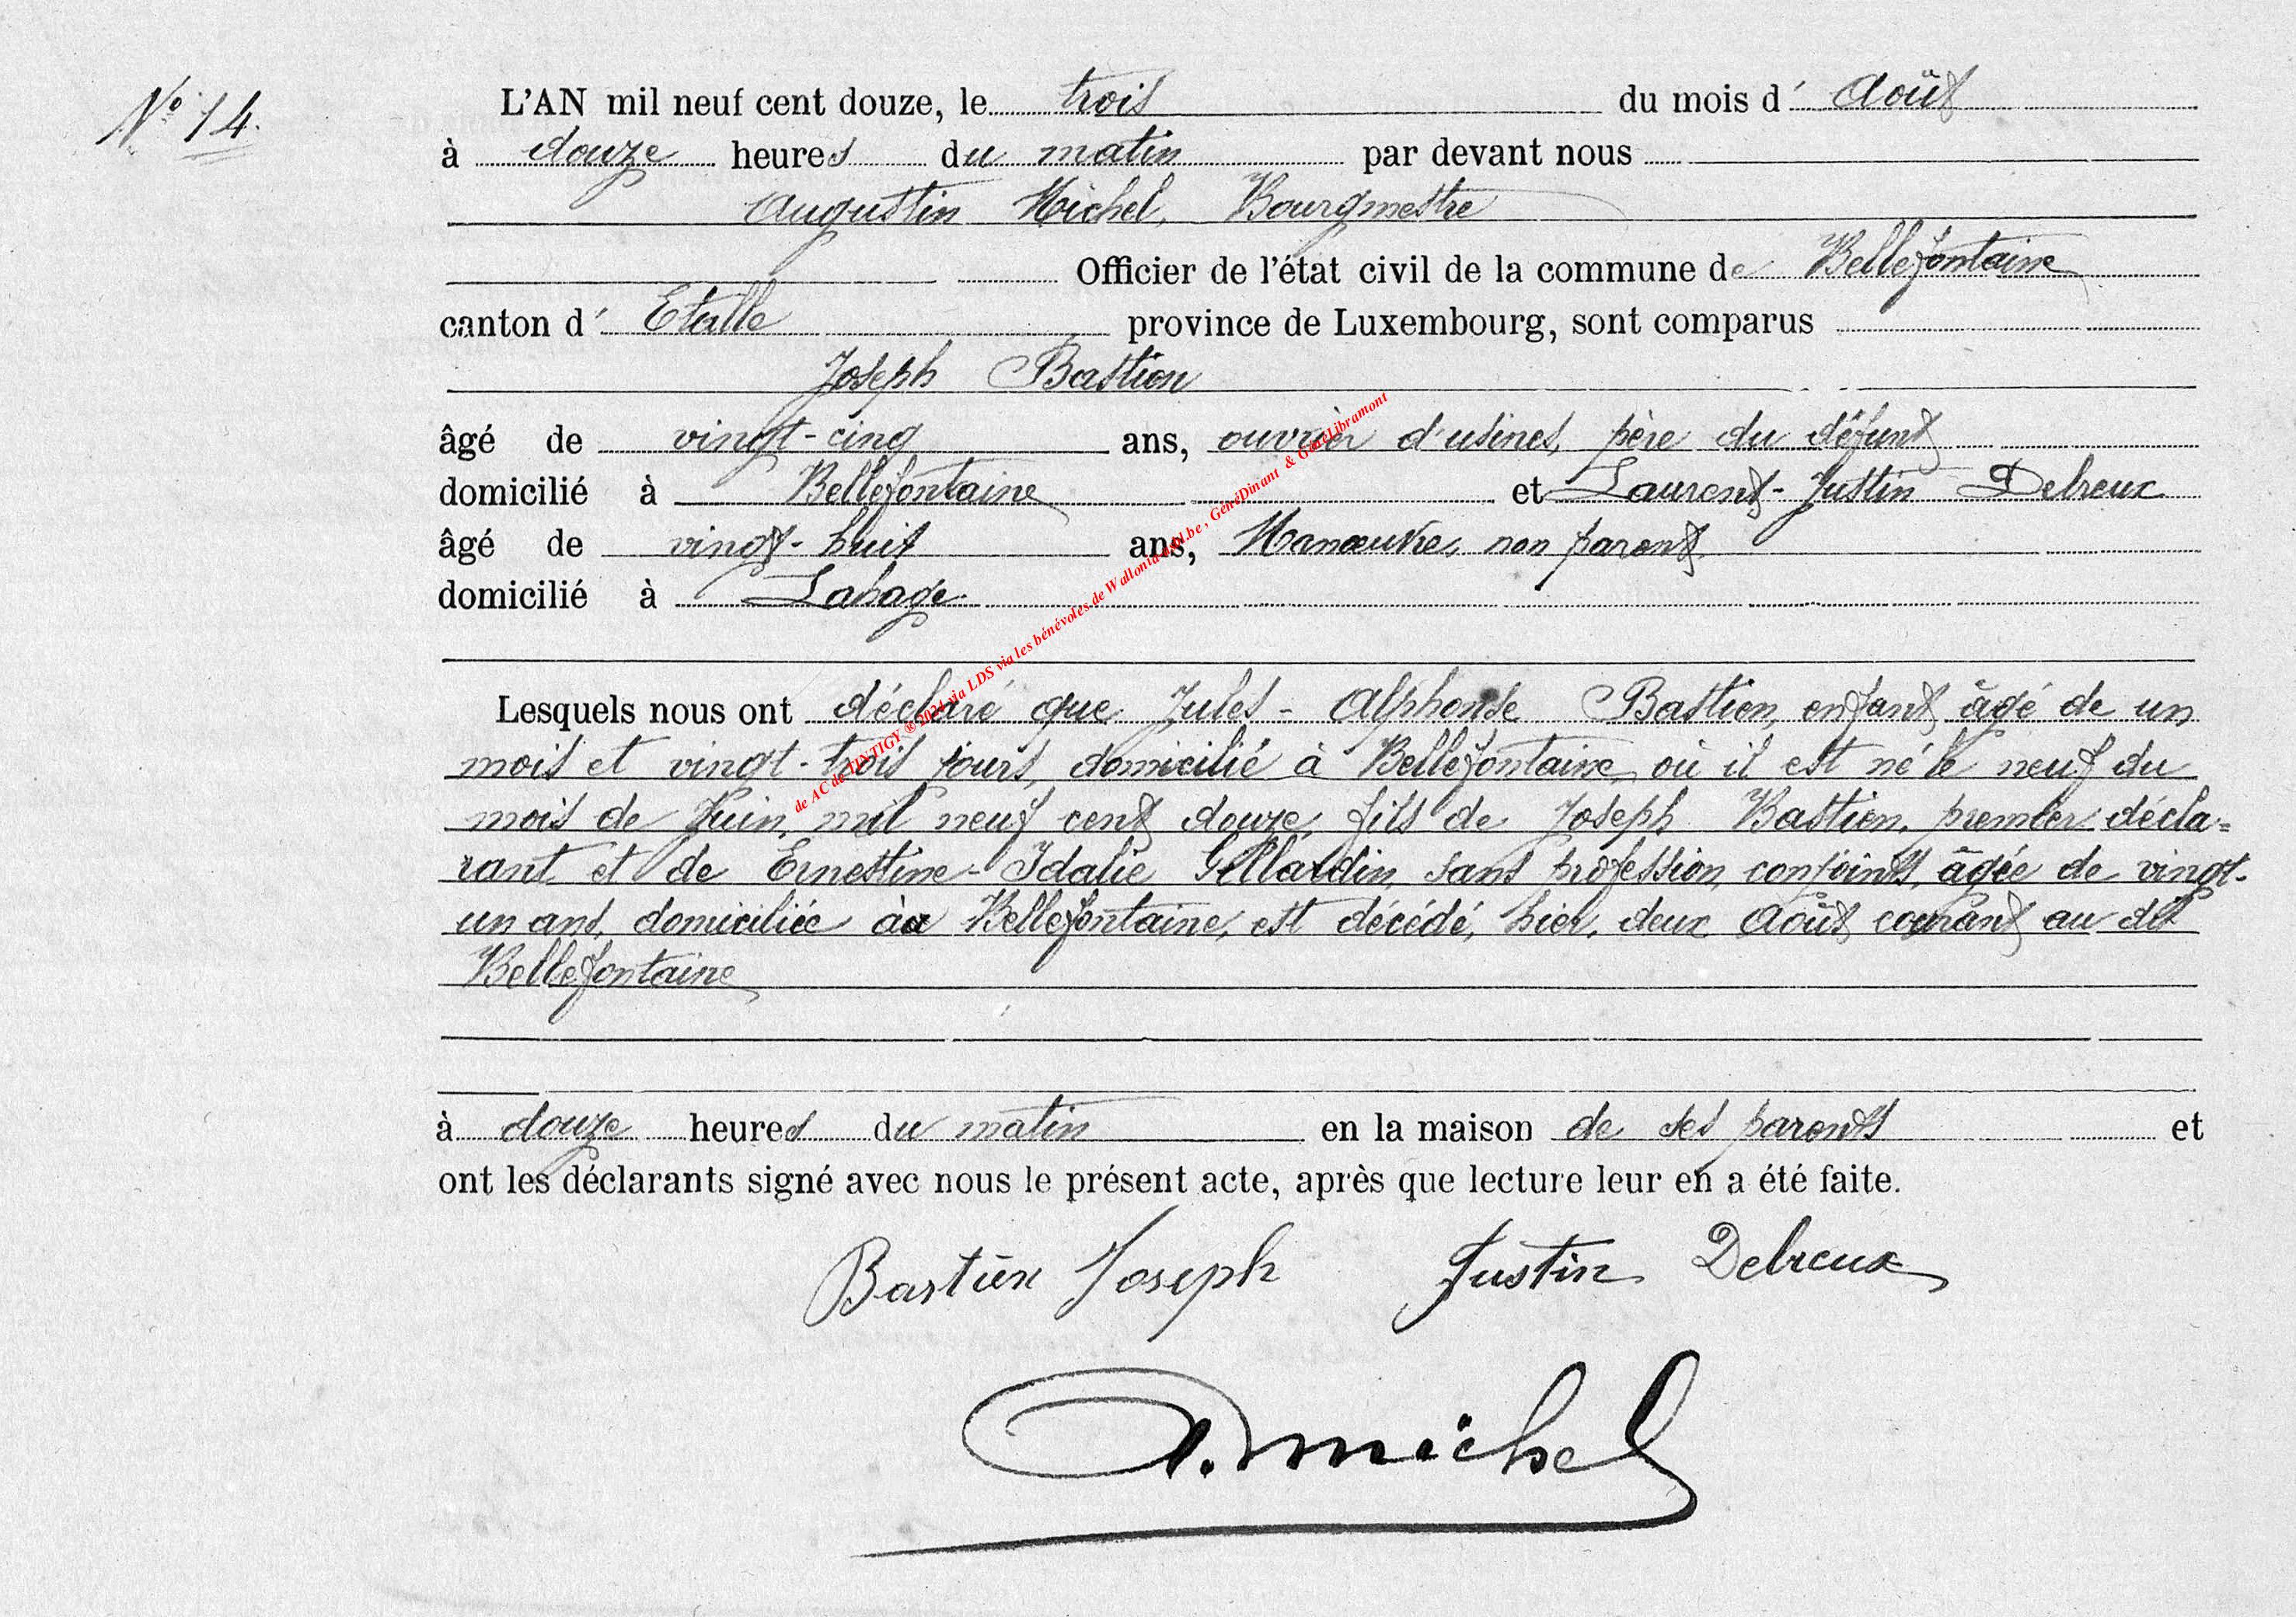 N° 14.
L'AN mil neuf cent douze, le trois du mois d' Août
à douze heures du matin par devant nous
Augustin Michel, Bourgmestre
Officier de l'état civil de la commune de Bellefontaine
canton d' Etalle province de Luxembourg, sont comparus
Joseph Bastien
âgé de vingt-cinq ans, ouvrier d'usines, père du défunt
domicilié à Bellefontaine et Laurent-Justin Delreux
âgé de vingt-huit ans, Manœuvre, non parent
domicilié à Lahage.
Lesquels nous ont déclaré que Jules-Alphonse Bastien, enfant âgé de un
mois et vingt-trois jours, domicilié à Bellefontaine, où il est né le neuf du
mois de Juin, mil neuf cent douze, fils de Joseph Bastien, premier décla=
rant et de Ernestine-Idalie Gillardin, sans profession, conjoints, âgée de vingt-
un ans, domiciliée à Bellefontaine, est décédé, hier, deux Août courant au dit
Bellefontaine
à douze heures du matin en la maison de ses parents et
ont les déclarants signé avec nous le présent acte, après que lecture leur en a été faite.
Bastien Joseph Justin Delreux
A. Michel
de AC de TINTIGY ® 2024 via LDS via les bénévoles de Wallonia asbl.be, GénéDinant & GénéLibramont